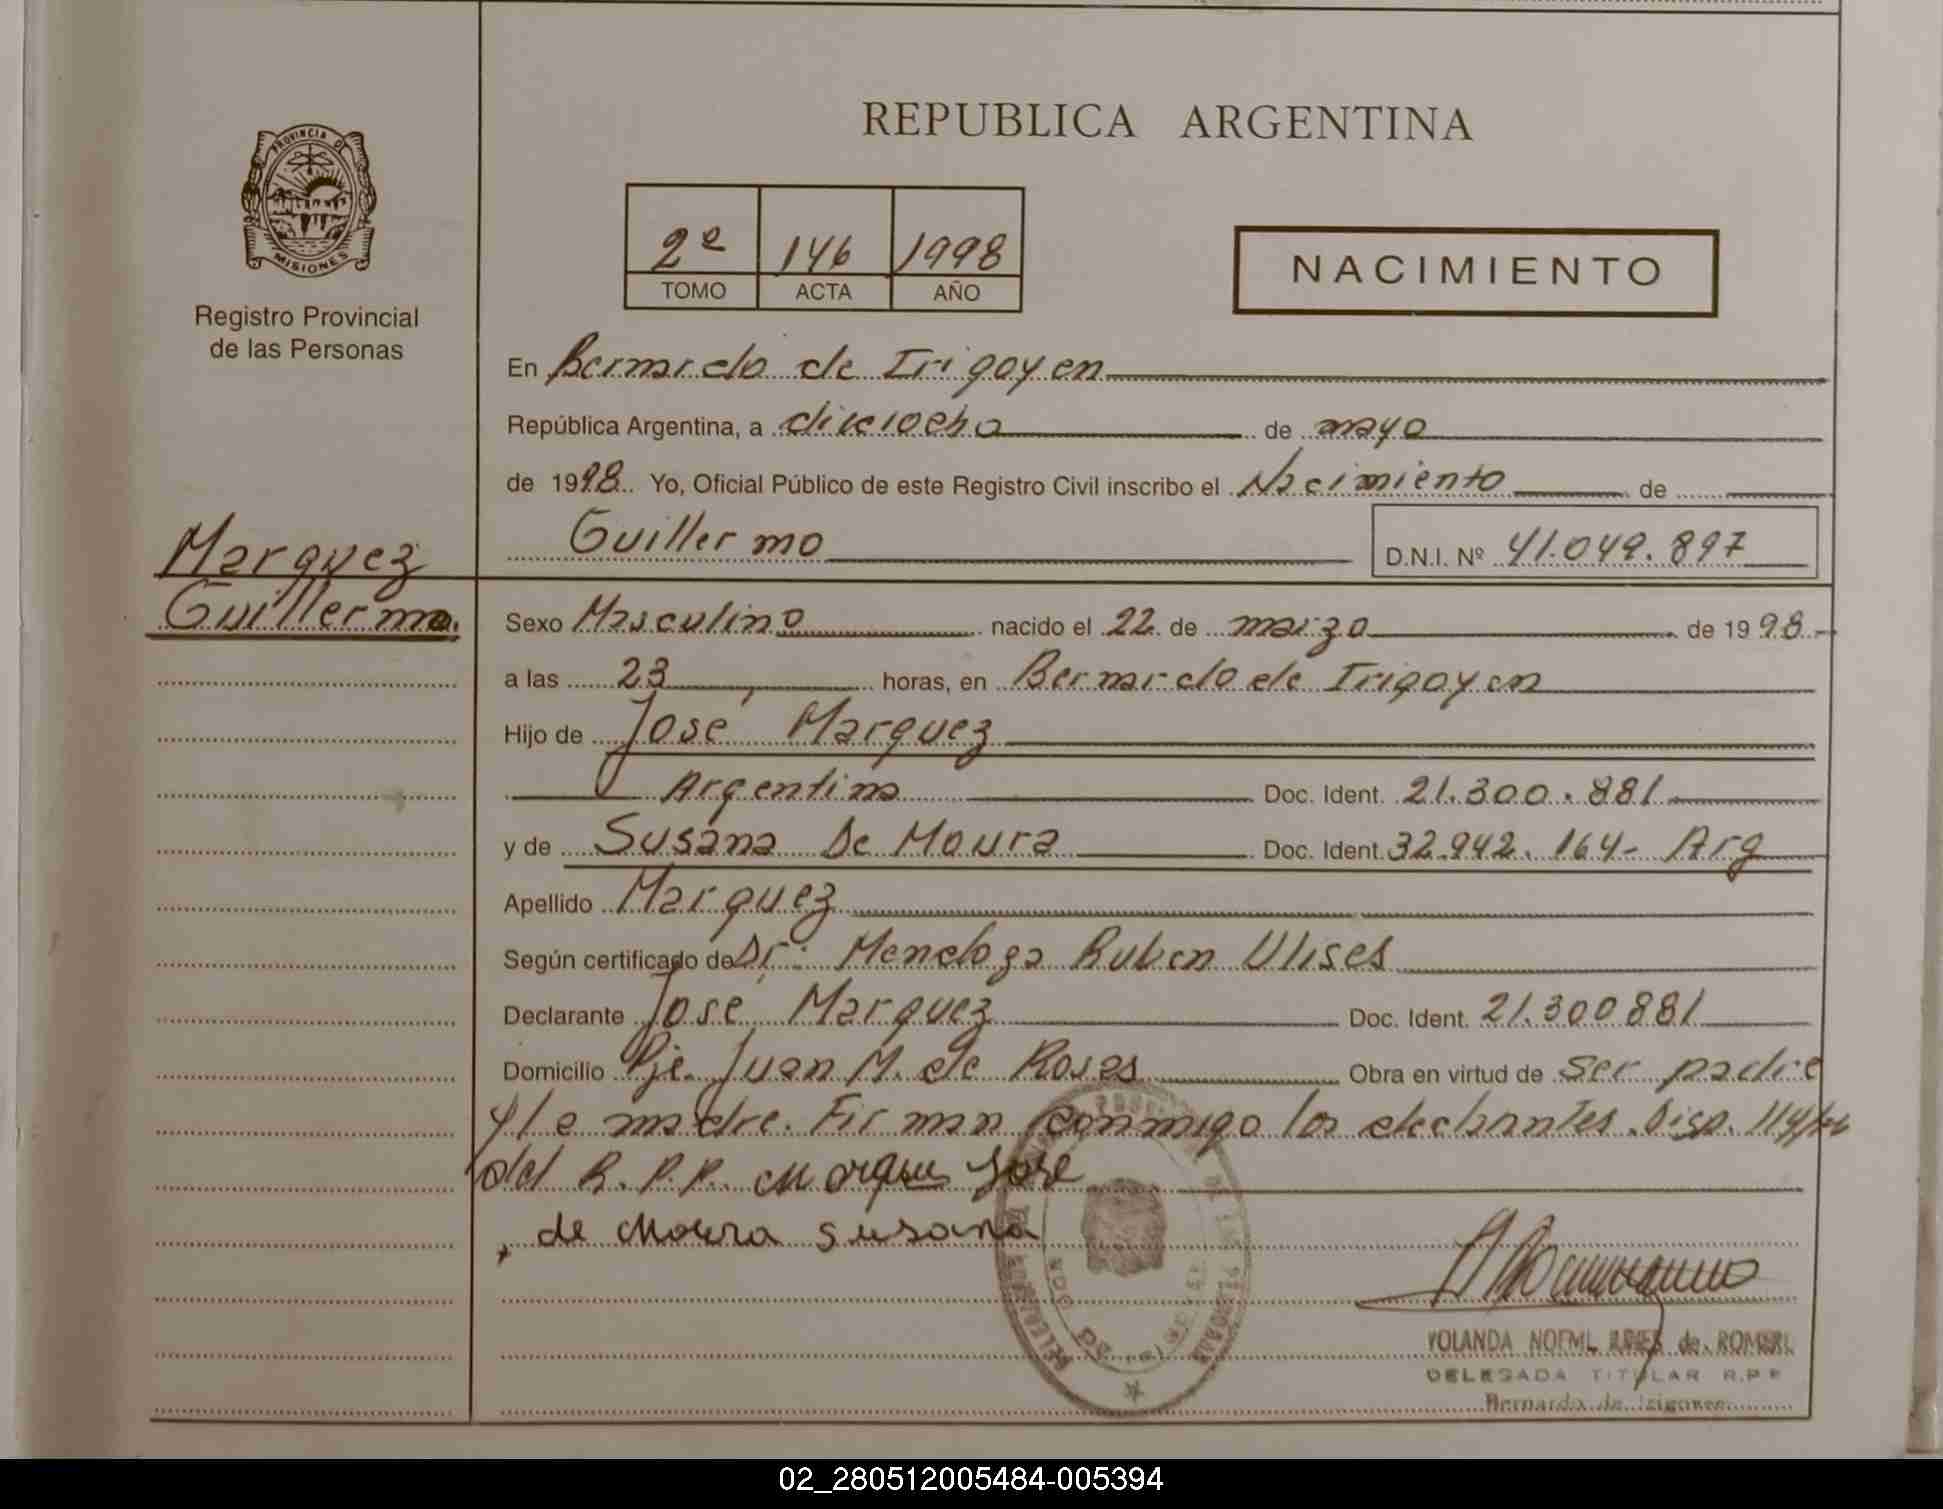 PROVINCIA DE
MISIONES
Registro Provincial
de las Personas
Marquez
Guillermo.
REPUBLICA ARGENTINA
2º 146 1998
TOMO ACTA AÑO
NACIMIENTO
En Bernardo de Irigoyen
República Argentina, a dieciocho de mayo
de 1998 Yo, Oficial Público de este Registro Civil inscribo el Nacimiento de
Guillermo D.N.I. Nº 41.049.897
Sexo Masculino nacido el 22 de marzo de 1998
a las 23 horas, en Bernardo de Irigoyen
Hijo de José Marquez
Argentino Doc. Ident. 21.300.881
y de Susana De Moura Doc. Ident. 32.942.164- Arg
Apellido Marquez
Según certificado de Dr. Mendoza Ruben Ulises
Declarante José Marquez Doc. Ident. 21.300881
Domicilio Pje. Juan M. de Rosas Obra en virtud de ser padre
y la madre. Firman conmigo los declarantes. Disp. 114/
del R.P.P. Marques Jose
, de Moura Susana
YOLANDA NOEMI de ROMERO
DELEGADA TITULAR R.P.P
Bernardo de Irigoyen
02_280512005484-005394